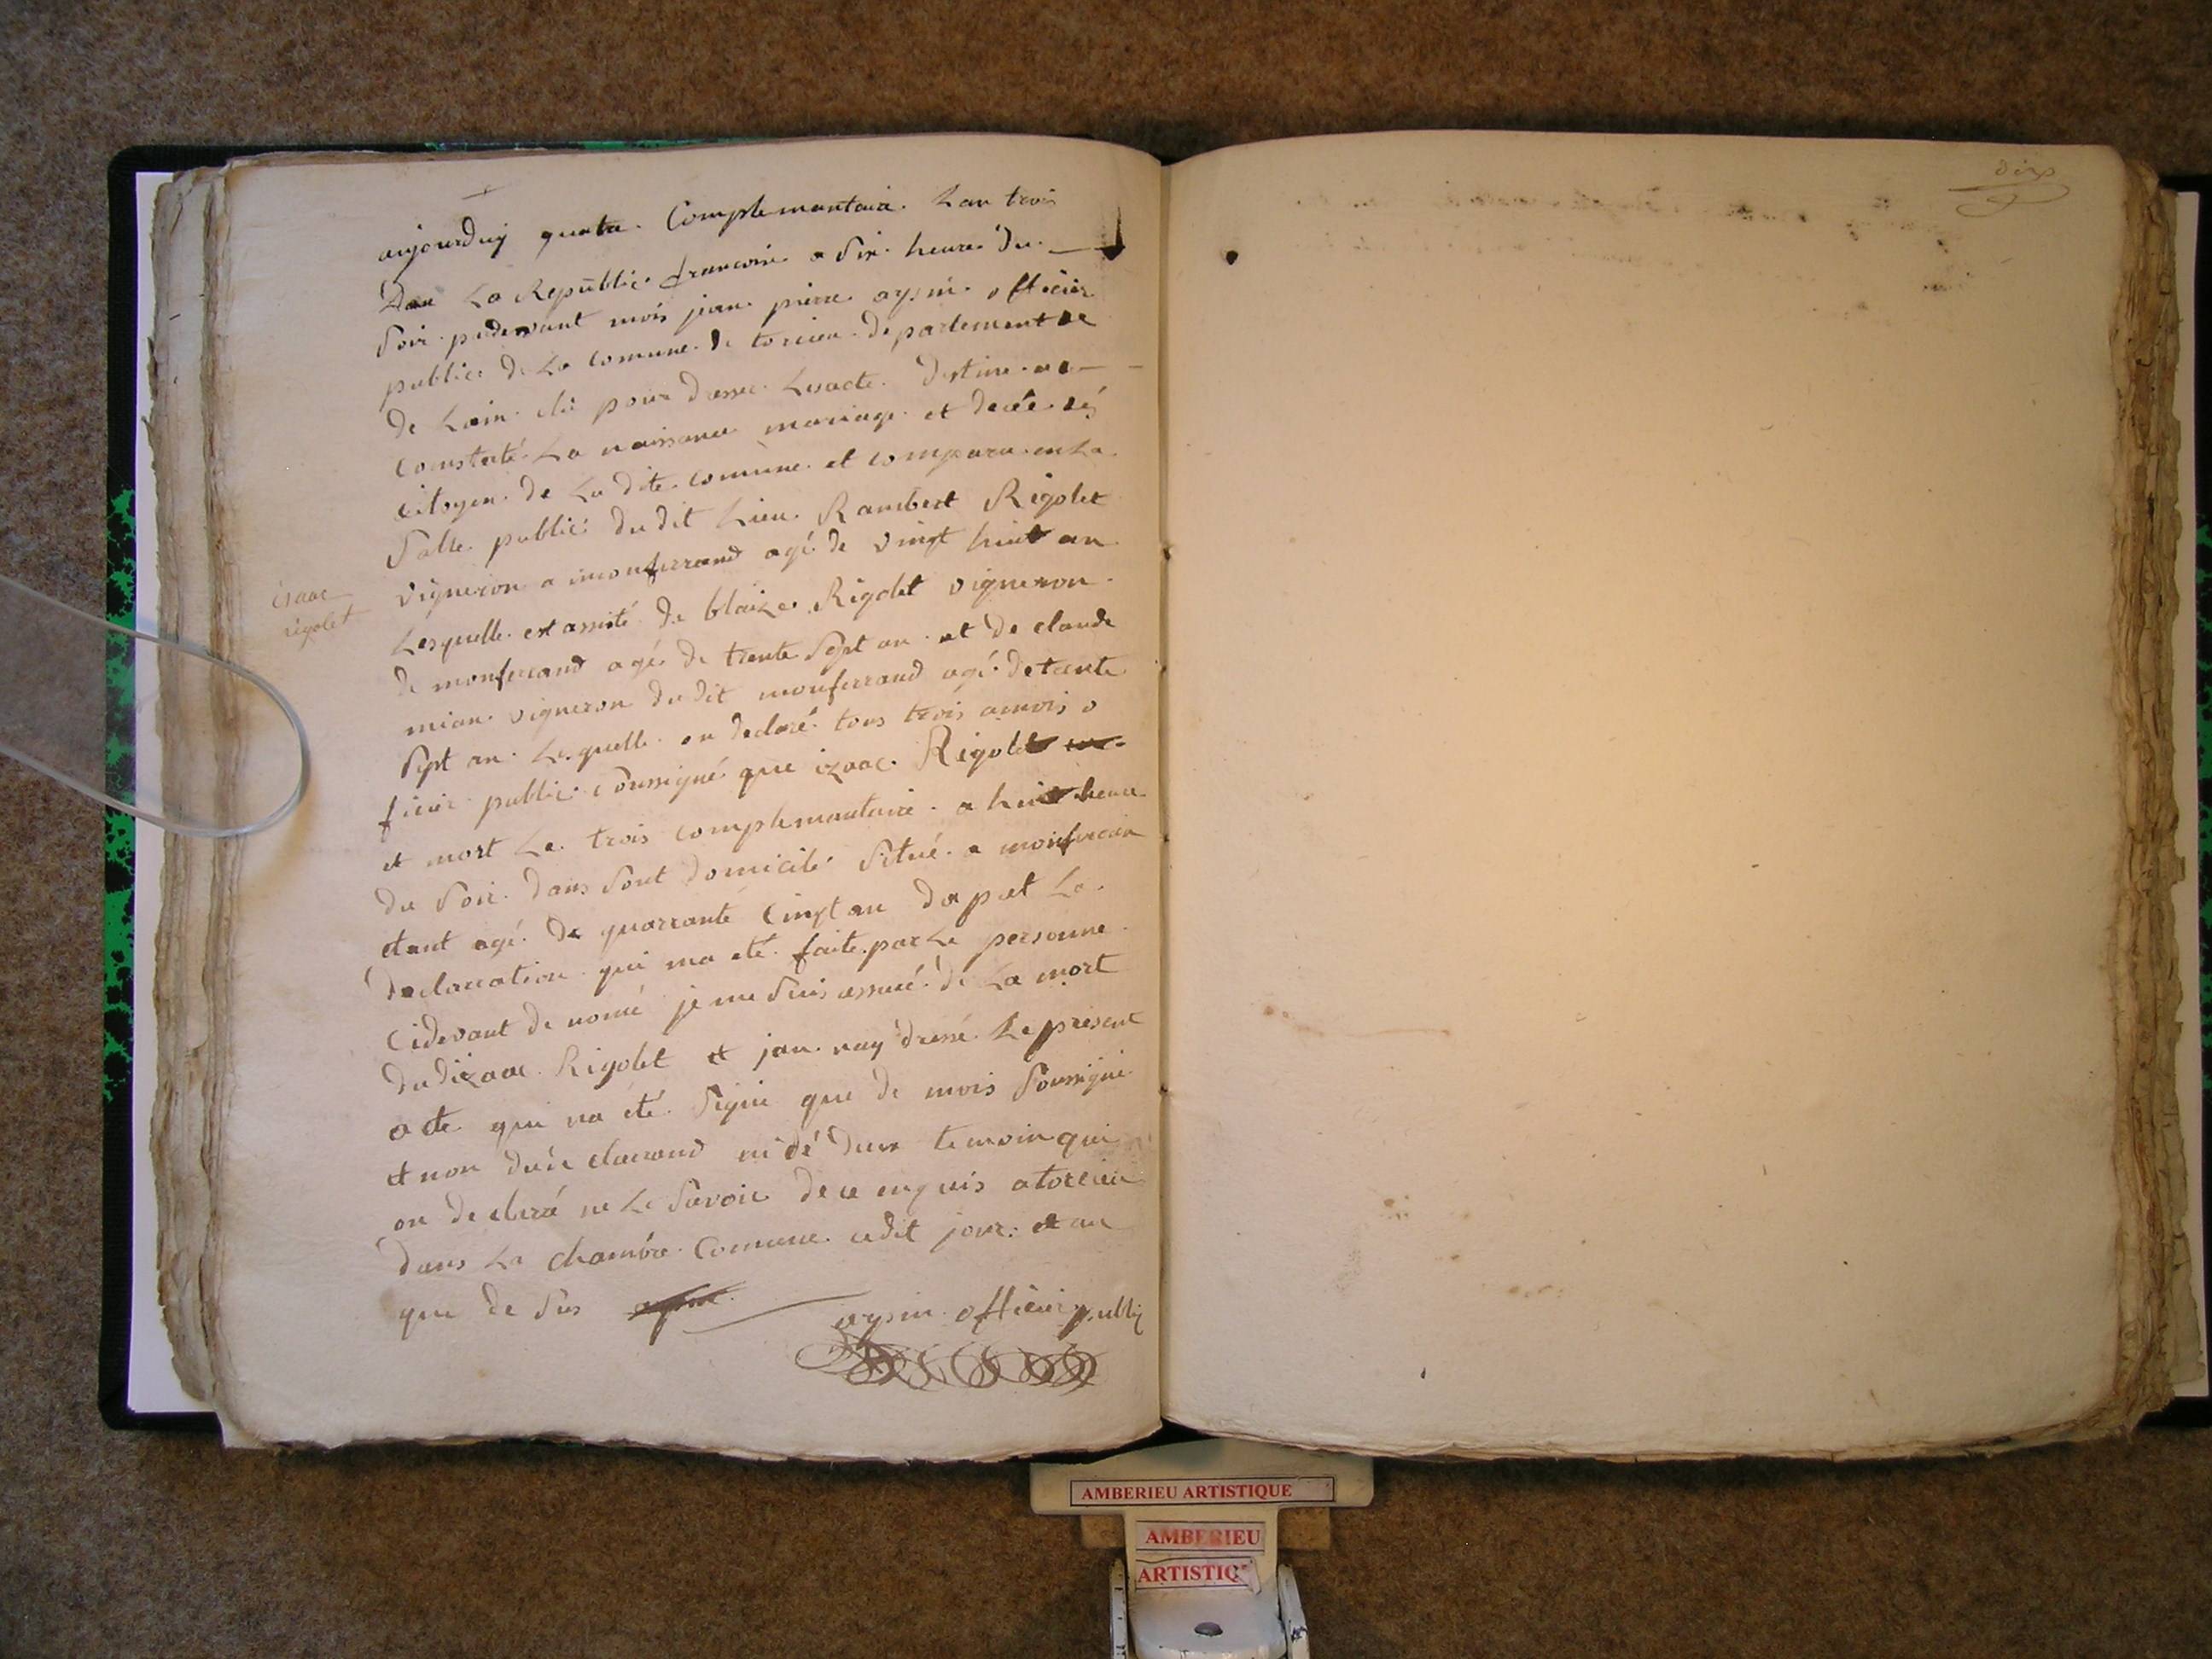 aujourduy quatre Complemantaire Lan trois
Dan La Republic francoise a Six heure du
Soir pardevant mois jean pierre aysin officier
public de La Comune de torcieu departement de
de Lain elu pour dresse Lesacte destine a
Constaté La naissance mariage et decée dés
Citoyen de La dite comune et comparu en La
Salle public du dit Lieu Rambert Rigolet
Vigneron a monferrand agé de vingt huit an
Lesquelle est assisté de blaize Rigolet vigneron
de monferrand agé de trente Sept an et de claude
mian vigneron du dit monferrand agé de trente
Sept an Lesquelle on declaré tous trois amois o
ficier public Soussigné que izaac Rigolet
et mort Le trois complemantaire a huit heure
du Soir dans Sont domicile Situé a monferran
etant agé de quarrante Cinqt an dapret La
declaration qui ma eté faite par Le personne
Cidevant de nomé je me Suis assuré de La mort
dudizaac Rigolet et jan nay dressé Le present
acte qui na été Signe que de mois Soussigné
et non du de clarand ni dé deux temoin qui
on declaré ne Le Savoir de ce enquis a torcieu
dans La chambre Comune cedit jour et an
que de Sus
aysin officier public
isaac
rigolet
dix
AMBERIEU ARTISTIQUE
AMBERIEU
ARTISTIQ